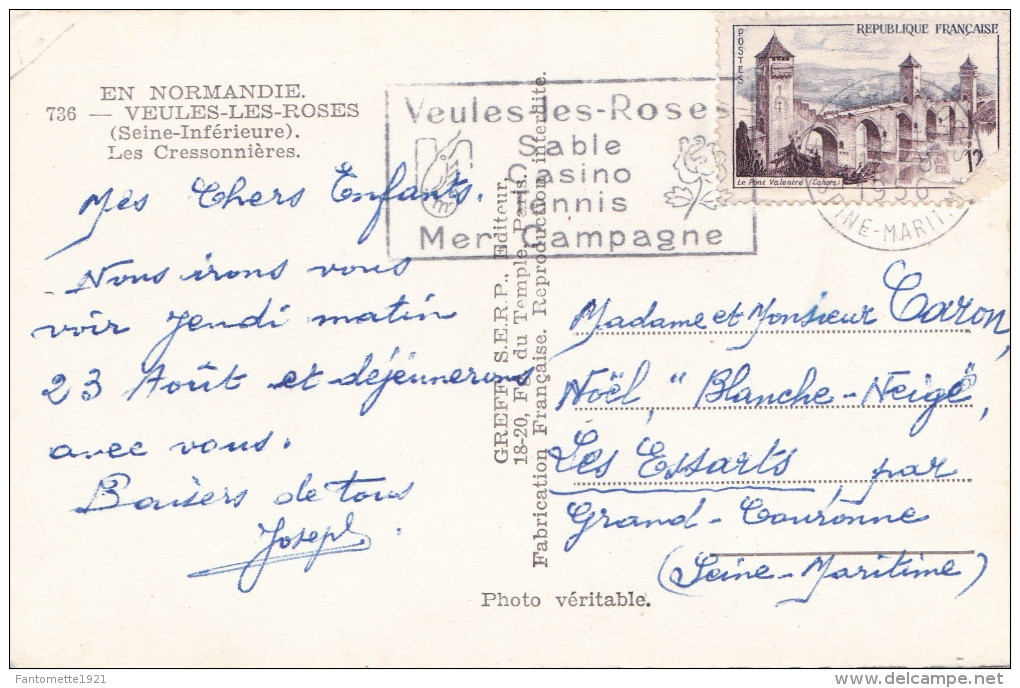 EN NORMANDIE.
736 — VEULES-LES-ROSES
(Seine-Inférieure).
Les Cressonnières.
Mes Chers Enfants.
Nous irons vous
voir Jeudi matin
23 Août et déjeunerons
avec vous.
Baisers de tous
Joseph.
Veules-les-Roses
Sable
Casino
Tennis
Mer Campagne
GREFF, S.E.R.P., Editeur,
18-20, Fg. du Temple, Paris.
Fabrication Française. Reproduction interdite.
REPUBLIQUE FRANÇAISE
POSTES
12
Le Pont Valentré (Cahors)
1956
SEINE-MARIT.
Madame et Monsieur Caron,
Noël, "Blanche-Neige",
Les Essarts, par
Grand-Couronne
(Seine-Maritime)
Photo véritable.
Fantomette1921
delcampe.net